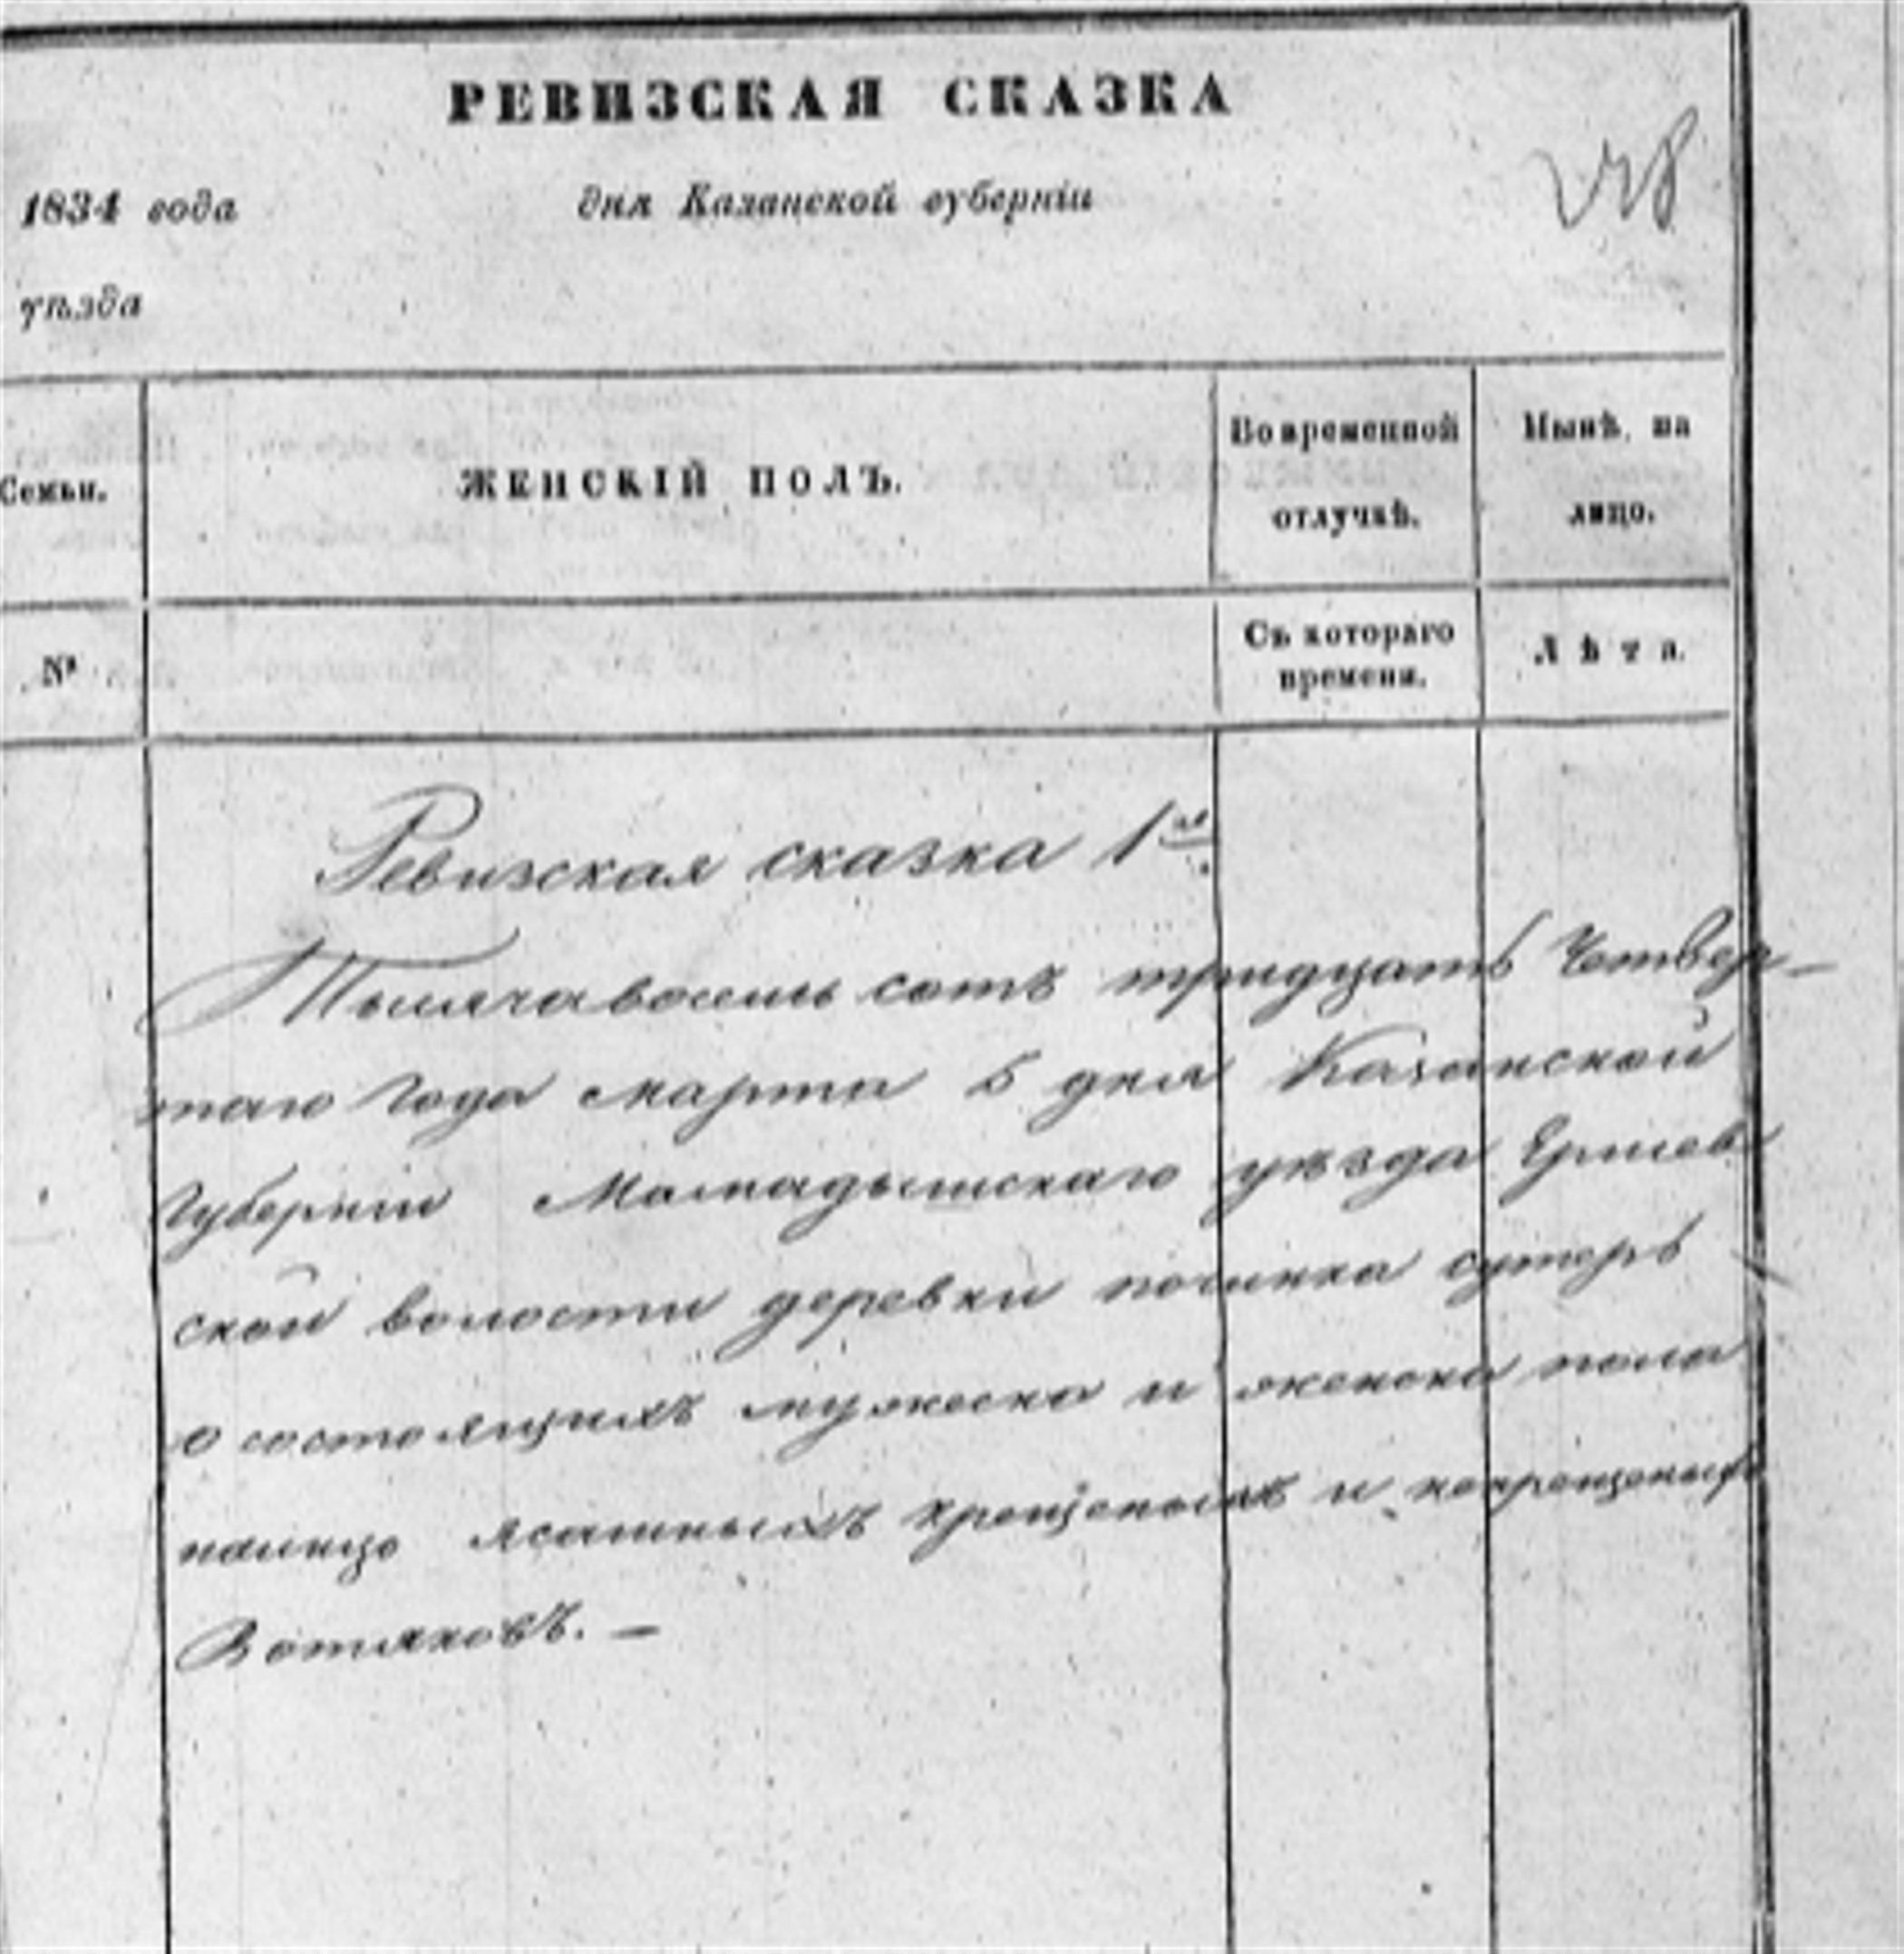 РЕВИЗСКАЯ СКАЗКА
1834 года дня Казанской губерніи
уѣзда
Семьи. ЖЕНСКІЙ ПОЛЪ. Во временной отлучкѣ. Нынѣ на лицо.
№ Съ котораго времени. Лѣта.
Ревизская сказка 1я
Тысяча восемь сотъ тридцать Четвер-
таго Года марта 5 дня Казанской
Губерніи Мамадышскаго уѣзда
ской волости деревни починка
о состоящихъ мужеска и женска пола
налицо Ясашныхъ крещеныхъ и некрещеныхъ
Вотяковъ. —